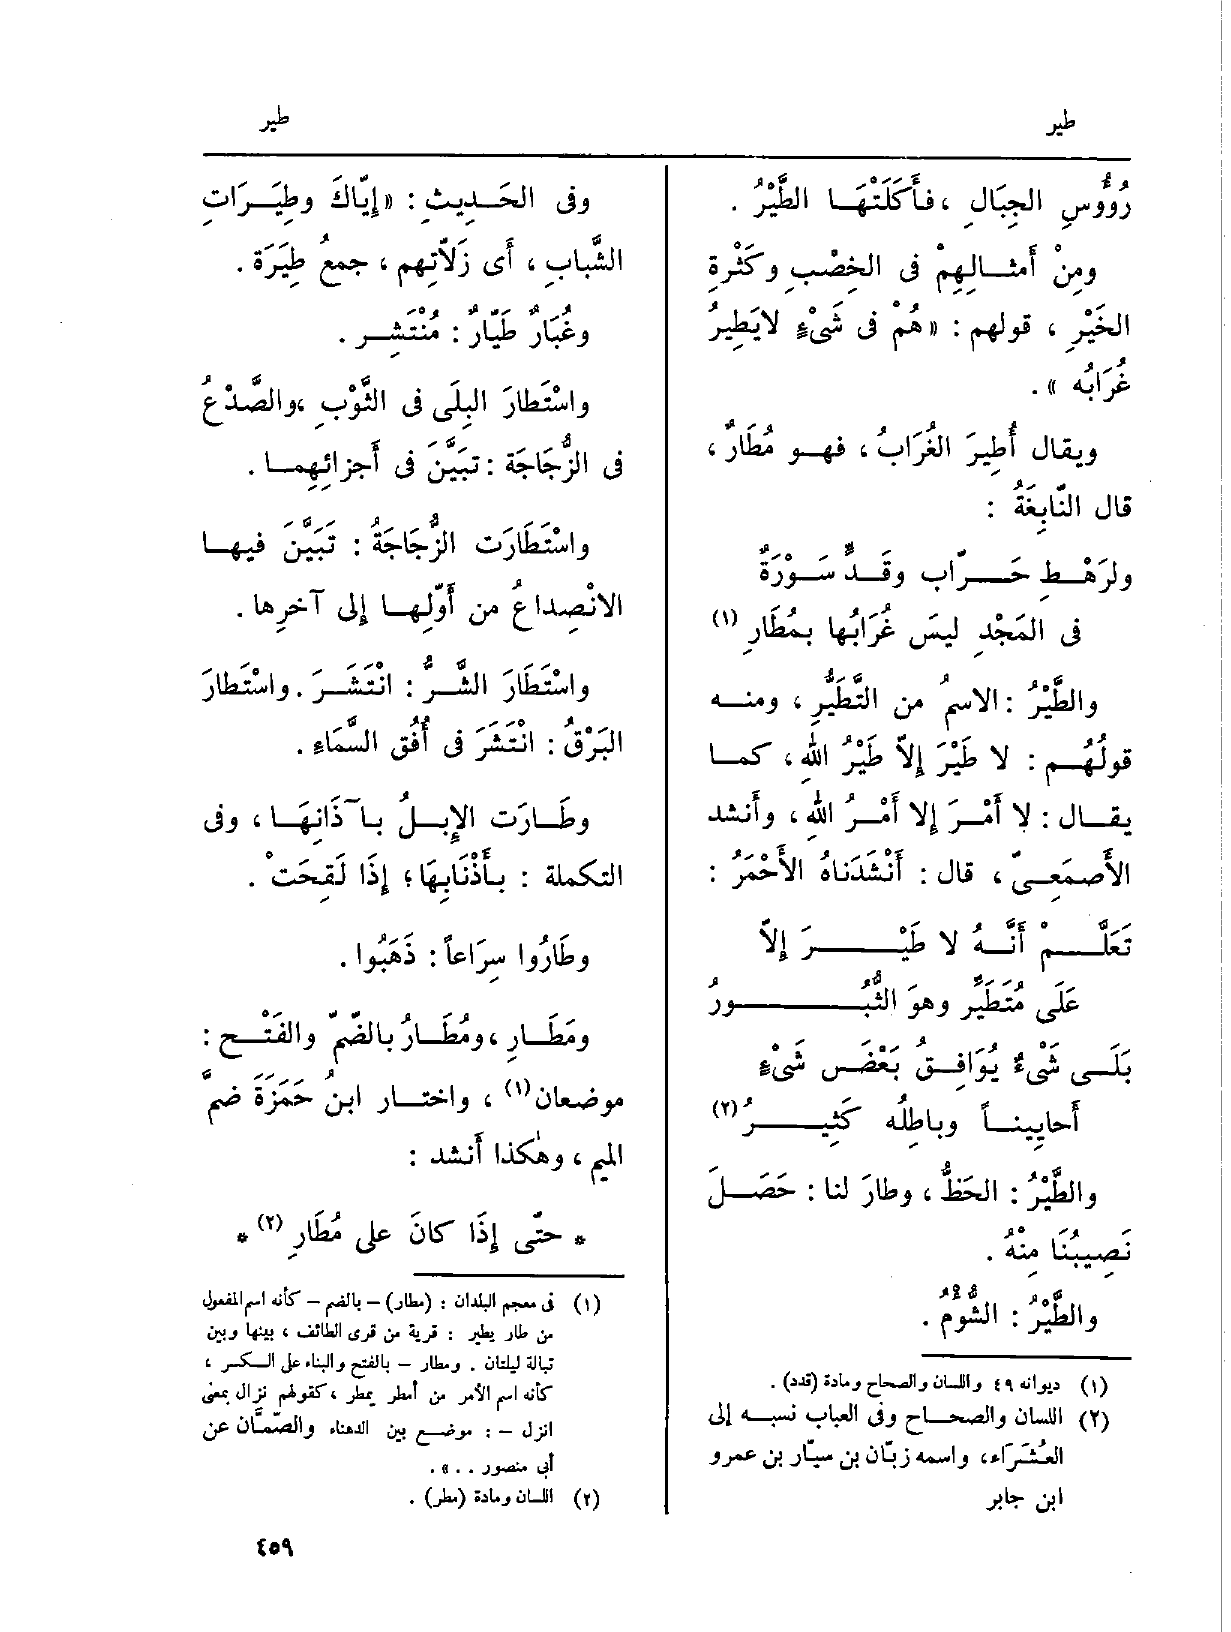 طير
طير
رُؤُوسِ الجِبَالِ ، فَأَكَلَتْهَا الطَّيْرُ .
ومِنْ أَمثالِهِمْ فى الخِصْبِ وكَثْرةِ
الخَيْرِ ، قولهم : « هُمْ فى شَىْءٍ لايَطِيرُ
غُرَابُه » .
ويقال أُطِيرَ الغُرَابُ ، فهو مُطَارٌ ،
قال النّابِغَةُ :
ولرَهْطِ حَرّابٍ وقَدٍّ سَوْرَةٌ
فى المَجْدِ ليسَ غُرَابُها بمُطَارِ (١)
والطَّيْرُ : الاسمُ من التَّطَيُّرِ ، ومنه
قولُهُم : لا طَيْرَ إِلاّ طَيْرُ اللهِ ، كما
يقال : لا أَمْرَ إِلا أَمْرُ اللهِ ، وأَنشد
الأَصمَعِىّ ، قال : أَنْشَدَناهُ الأَحْمَرُ :
تَعَلَّمْ أَنَّهُ لا طَيْرَ إِلاّ
عَلَى مُتَطَيِّرٍ وهوَ الثُّبُورُ
بَلَى شَىْءٌ يُوَافِقُ بَعْضَ شَىْءٍ
أَحايِيناً وباطِلُه كَثِيرُ (٢)
والطَّيْرُ : الحَظُّ ، وطارَ لنا : حَصَلَ
نَصِيبُنَا مِنْهُ .
والطَّيْرُ : الشُّؤْمُ .
(١) ديوانه ٤٩ واللسان والصحاح ومادة (قدد) .
(٢) اللسان والصحاح وفى العباب نسبه إلى
العُشَرَاء، واسمه زبّان بن سيار بن عمرو
ابن جابر
وفى الحَدِيثِ : « إِيّاكَ وطِيَرَاتِ
الشَّبابِ ، أَى زَلاّتِهم ، جمعُ طِيَرَة .
وغُبَارٌ طَيّارٌ : مُنْتَشِر .
واسْتَطارَ البِلَى فى الثَّوْبِ ، والصَّدْعُ
فى الزُّجَاجَة : تبَيَّنَ فى أَجزائِهِما .
واسْتَطَارَت الزُّجَاجَةُ : تَبَيَّنَ فيها
الانْصِداعُ من أَوّلِها إِلى آخرِها .
واسْتَطَارَ الشَّرُّ : انْتَشَرَ . واسْتَطارَ
البَرْقُ : انْتَشَرَ فى أُفُق السَّمَاءِ .
وطَارَت الإِبلُ بآذَانِهَا ، وفى
التكملة : بأَذْنَابِهَا ؛ إِذَا لَقِحَتْ .
وطَارُوا سِرَاعاً : ذَهَبُوا .
ومَطَارِ ، ومُطَارُ بالضّمّ والفَتْحِ :
موضعان (١) ، واختار ابنُ حَمَزَةَ ضمَّ
الميم ، وهٰكذا أَنشد :
* حتّى إِذَا كانَ على مُطَارِ (٢) *
(١) فى معجم البلدان : (مطار) – بالضم – كأنه اسم المفعول
من طار يطير : قرية من قرى الطائف ، بينها وبين
تبالة ليلتان . ومطار – بالفتح والبناء على الكسر ،
كأنه اسم الأمر من أمطر يمطر ، كقولهم نزال بمعنى
انزل – : موضع بين الدهناء والصّمّان عن
أبى منصور . . » .
(٢) اللسان ومادة (مطر) .
٤٥٩